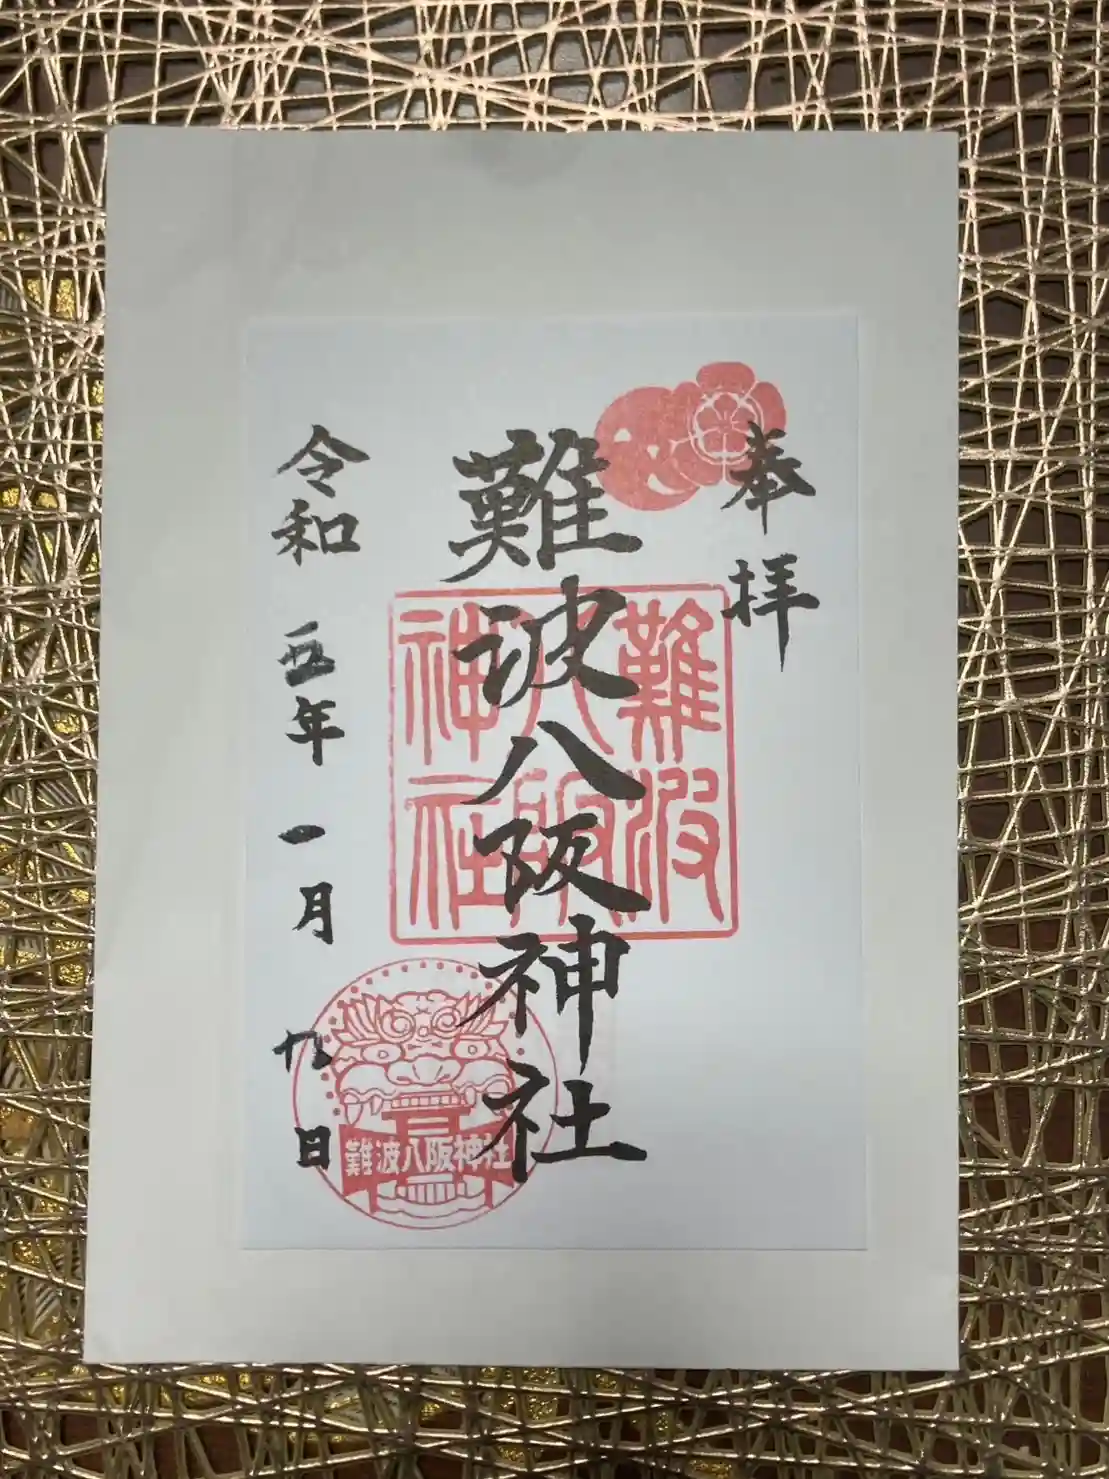 奉拝
難波八阪神社
難波八阪神社
令和五年一月九日
難波八阪神社